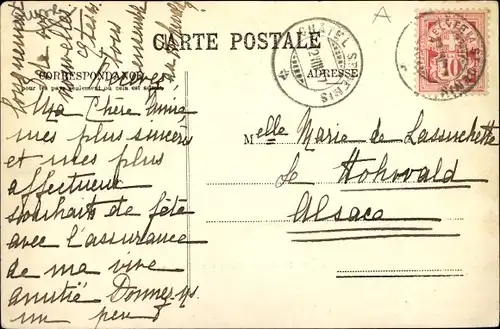 CARTE POSTALE
CORRESPONDANCE
ADRESSE
pour les pays seulement où cela est admis.
Ma Chère Amie
mes plus sincères
et mes plus
affectueux
souhaits de fête
avec l'assurance
de ma vive
amitié Donnez-ns.
un peu
de vos
nouvelles
tous
Melle Marie de Lassuchette
Le Hohwald
Alsace
HELVETIA
10
A